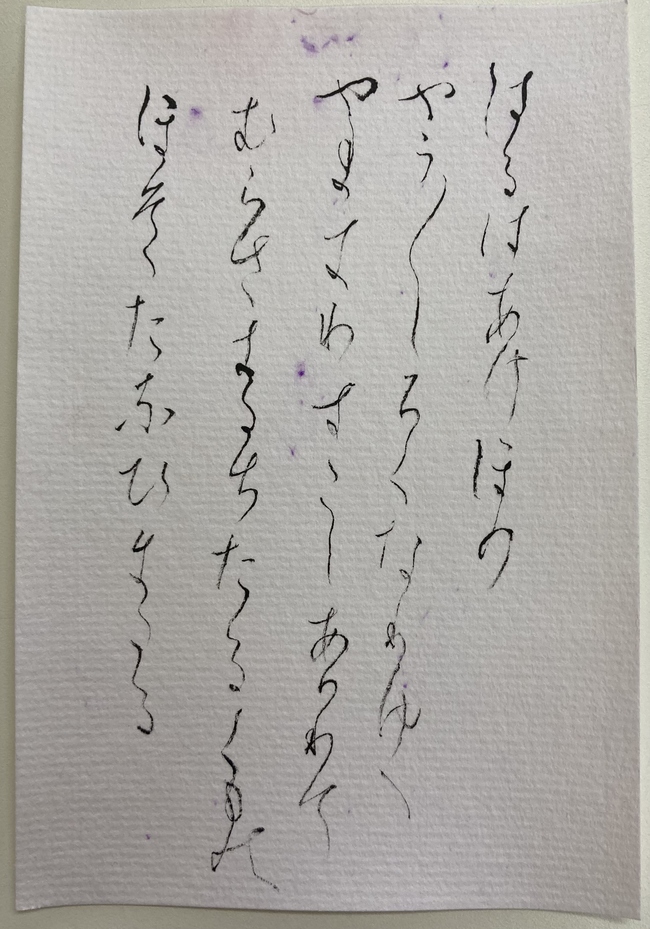 はるはあけほの
やう〳〵しろくなりゆく
やまきわすこしあかりて
むらさきたちたるくもの
ほそくたなひきたる